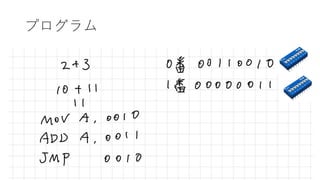 プログラム
2+3
10+11
11
MOV A, 0010
ADD A, 0011
JMP 0010
0番 00110010
1番 00000011